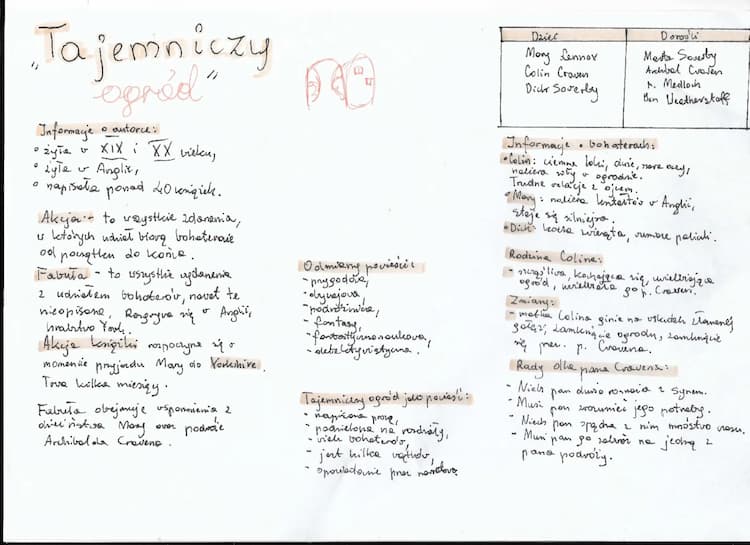 „Tajemniczy
ogród"
Informacje o autorce:
• żyła w XIX i XX wieku,
• żyła w Anglii,
• napisała ponad 40 książek.
Akcja - to wszystkie zdarzenia,
w których udział biorą bohaterowie
od początku do końca.
Fabuła - to wszystkie wydarzenia
z udziałem bohaterów, nawet te
nieopisane. Rozgrywa się w Anglii,
hrabstwo York.
Akcja książki rozpoczyna się w
momencie przyjazdu Mary do Yorkshire.
Trwa kilka miesięcy.
Fabuła obejmuje wspomnienia z
dzieciństwa Mary oraz podróże
Archibalda Cravena.
Odmiany powieści:
- przygodowa,
- obyczajowa,
- podróżnicza,
- fantasy,
- fantastycznonaukowa,
- detektywistyczna.
Tajemniczy ogród jako powieść:
- napisana prozą,
- podzielona na rozdziały,
- wiele bohaterów,
- jest kilka wątków,
- opowiadanie przez narratora.
Dzieci
Mary Lennox
Colin Craven
Dick Sowerby
Dorośli
Marta Sowerby
Archibal Craven
p. Medlock
Ben Weatherstaff
Informacje o bohaterach:
• Colin: ciemne loki, duże, szare oczy,
nabiera siły w ogrodzie.
Trudne relacje z ojcem.
• Mary: nabiera kształtów w Anglii,
staje się silniejsza.
• Dick: kocha zwierzęta, rumore policzki.
Rodzina Colina:
- szczęśliwa, kochająca się, uwielbiająca
ogród, uwielbiała go p. Craven.
Zmiany:
- matka Colina ginie na skutek złamanej
gałęzi, zamknięcie ogrodu, zamknięcie
się przez p. Cravena.
Rady dla pana Cravena:
- Niech pan dużo rozmawia z synem.
- Musi pan zrozumieć jego potrzeby.
- Niech pan spędza z nim mnóstwo czasu.
- Musi pan go zabrać na jedną z
pana podróży.